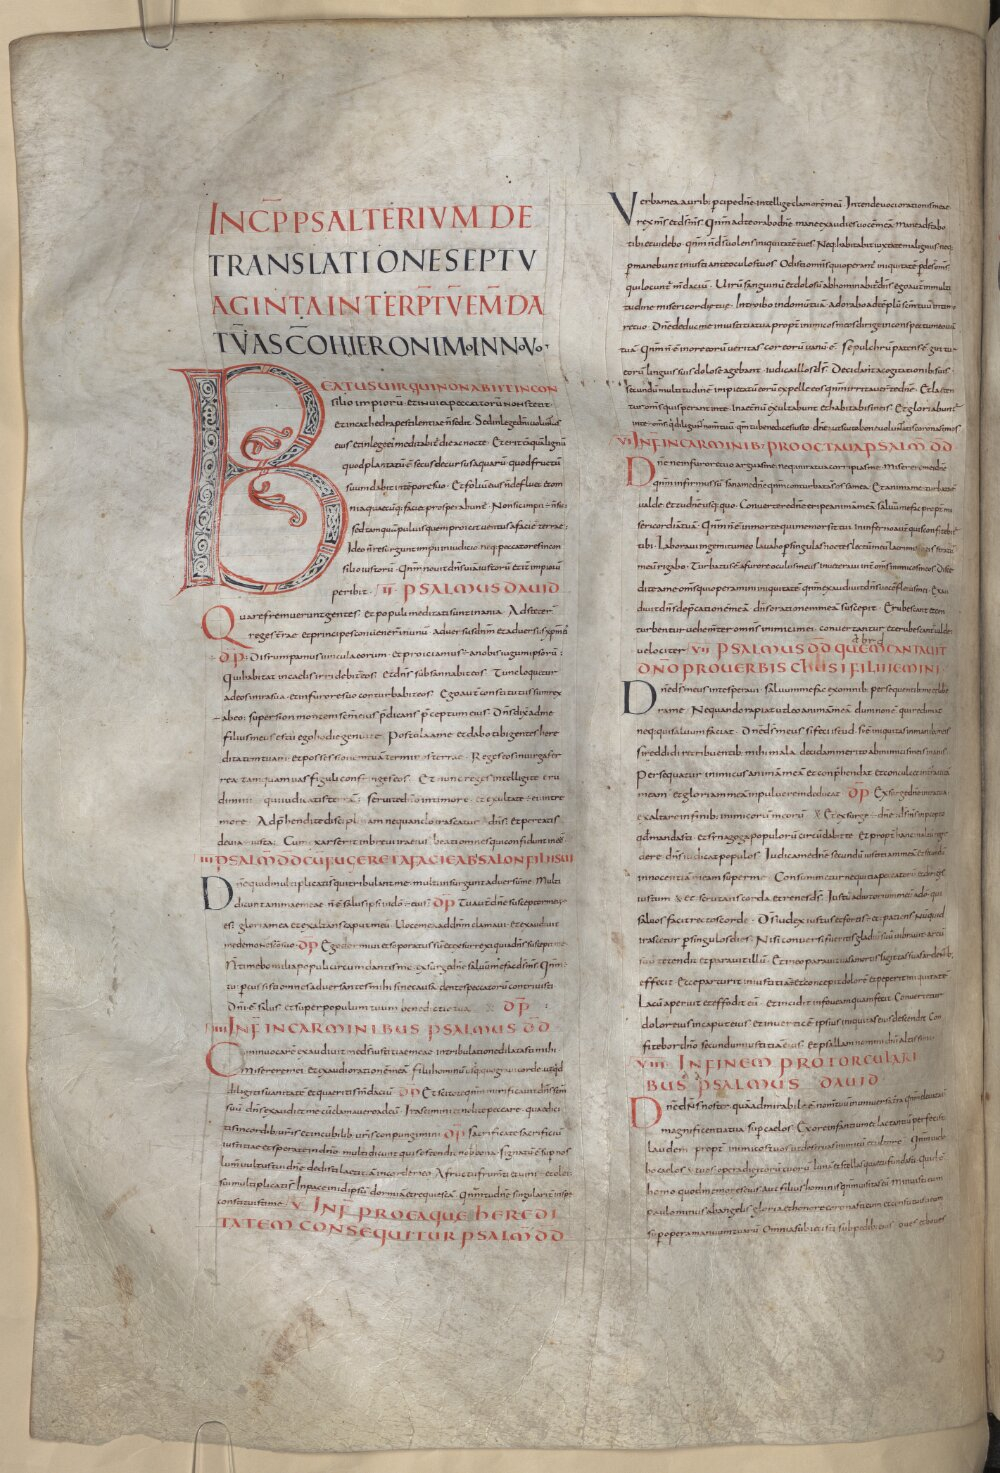 INCP̄ PSALTERIVM DE
TRANSLATIONE SEPTV
AGINTA INTERP̄TV̄ EM̄DA
TV̄ A S̄CO HIERONIMO IN NOVO
BEATUS UIR QUI NON ABIIT IN CON
silio impiorū · et in uia peccatorū non stetit ·
et in cathedra pestilentiae n̄ sedit · Sed in lege dn̄i uoluntas
eius et in lege ei meditabit die ac nocte · Et erit tāquā lignū
quod plantatū ē secus decursus aquarū · quod fructū
suum dabit in tēpore suo · Et foliū eius n̄ defluet et om
nia quaecūq; faciet prosperabunt · Non sic impii n̄ sic
sed tamquā puluis quem proicit uentus a facie terrae ;
Ideo n̄ resurgunt impii in iudicio · neq; peccatores in con
silio iustorū · Qn̄m nouit dn̄s uia iustorū et iter impiorū
peribit · II PSALMUS DAUID
Quare fremuerunt gentes · et populi meditati sunt inania · Adsteter
reges terrae et principes conuenerunt in unū · aduersus dn̄m et aduersus xp̄m eiꝰ
D̄P̄ · Disrumpamus uincula eorum · et proiciamus a nobis iugum ipsorū ;
Qui habitat in caelis irridebit eos · Et dn̄s subsannabit eos · Tunc loquetur
ad eos in ira sua · et in furore suo conturbabit eos · Ego aut constitutus sum rex
ab eo ; super sion montem scm̄ eius p̄dicans p̄ceptum eius · Dn̄s dix ad me
filius meus es tu ego hodie genui te · Postula a me et dabo tibi gentes here
ditatem tuam · et possessionem tuā terminos terrae · Reges eos in uirga fer
rea tamquam uas figuli confringes eos · Et nunc reges intelligite eru
dimini qui iudicatis terrā ; seruite dn̄o in timore · et exultate ei in tre
more · Adp̄hendite disciplinam nequando irascatur dn̄s · Et pereatis
de uia iusta ; Cum exarserit in breui ira eius · beati omnes qui confidunt in eo
III PSALM̄ D̄D̄ CŪ FUGERET A FACIE ABSALON FILII SUI
Dn̄e quid multiplicati st̄ qui tribulant me · multi insurgunt aduersū me · Multi
dicunt animae meae n̄ ē salus ipsi in dō eius ; D̄P̄ Tu aut dn̄e susceptor meus
es · gloria mea et exaltans caput meū Uoce mea ad dn̄m clamaui · et exaudiuit
me de monte sc̄o suo · D̄P̄ Ego dormiui et soporatus sū et exsurrexi quia dn̄s suscepit me
N̄ timebo milia populi circumdantis me · exsurge dn̄e saluū me fac ds̄ ms̄ · Qn̄m
tu percussisti omnes aduersantes mihi sine causa · dentes peccatorū contriuisti
Dn̄i ē salus et super populum tuum benedictio tua · D̄P̄ ·
IIII IN F̄ IN CARMINIBUS PSALMUS D̄D̄
Cum inuocarē exaudiuit me ds̄ iustitiae meae in tribulatione dilatasti mihi
Miserere mei et exaudi orationē meā · Filii hominū usquequo graui corde utquid
diligitis uanitatē et quaeritis mendaciū D̄P̄ Et scitote qn̄m mirificauit dn̄s scm̄
suū · dn̄s exaudiet me cū clamauero ad eū · Irascimini et nolite peccare · quae dici
tis in cordib; ur̄is et in cubilib; ur̄is conpungimini D̄P̄ Sacrificate sacrificiū
iustitiae et sperate in dn̄o · multi dicunt quis ostendit nob bona · Signatū ē sup nos
lum̄ uultus tui dn̄e dedisti laetitiā in corde meo · A fructu frum̄ti et uini et olei
sui multiplicati s̄ · In pace in id ipsū dormiā et requiescā · Qn̄m tu dn̄e singulariter in spe
constituisti me · V IN F̄ PRO EA QUE HEREDI
TATEM CONSEQUITUR PSALM̄ D̄D̄
Verba mea aurib; percipe dn̄e · intellige clamorē meū · Intende uoci orationis meae ·
rex ms̄ et ds̄ ms̄ · Qn̄m ad te orabo dn̄e · mane exaudies uocē meā · Mane adstabo
tibi et uidebo · qn̄m n̄ ds̄ uolens iniquitatē tu es · Neq; habitabit iuxta te malignus · neq;
permanebunt iniusti ante oculos tuos · Odisti omn̄s qui operant iniquitatē · perdes omn̄s
qui locunt mendaciū · Uirū sanguinū et dolosū abhominabit dn̄s · ego aut in multi
tudine misericordiae tuae · Introibo in domū tuā · adorabo ad tēplū scm̄ tuū in tim
re tuo · Dn̄e deduc me in iustitia tua · propter inimicos meos dirige in conspectu meo uiā
tuā · Qn̄m n̄ ē in ore eorū ueritas cor eorū uanū ē · Sepulchrū patens ē guttur
eorū linguis suis dolose agebant · iudica illos ds̄ · Decidant a cogitationib; suis ·
secundū multitudinē impietatū eorū expelle eos qn̄m irritauer te dn̄e · Et laeten
tur omn̄s qui sperant in te · In aet̄nū exultabunt et habitabis in eis · Et gloriabunt
in te · omn̄s qui diligunt nomen tuū · qm̄ tu benedices iusto · dn̄e ut scuto bonae uoluntatis coronasti nos
VI IN F̄ IN CARMINIB; PRO OCTAUA PSALM̄ D̄D̄
Dn̄e ne in furore tuo arguas me · neq; in ira tua corripias me · Miserere mei dn̄e
qn̄m infirmus sū · sana me dn̄e qn̄m conturbata s̄ ossa mea · Et anima mea turbata ē
ualde · et tu dn̄e usq; quo · Conuertere dn̄e eripe animā meā · saluū me fac propter mi
sericordiā tuā · Qn̄m n̄ ē in morte qui memor sit tui · in inferno aut quis confitebit
tibi · Laboraui in gemitu meo · lauabo p singulas noctes lectū meū lacrimis meis stratū
meū rigabo · Turbatus ē a furore oculus meus · inueteraui int̄ omn̄s inimicos meos · Disce
dite a me omn̄s qui operamini iniquitatē · qn̄m exaudiuit dn̄s uocē fletus mei · Exau
diuit dn̄s dep̄cationē meā · dn̄s orationem meā suscepit · Erubescant et con
turbentur uehemter omn̄s inimici mei · conuertantur et erubescant ualde
uelociter · VII PSALMUS D̄D̄ QUEM CANTAUIT
DN̄O PRO UERBIS CHUSI FILII IEMINI ·
Dn̄e ds̄ meus in te speraui · saluum me fac ex omnib; persequentib; me et libe
ra me · Nequando rapiat ut leo animā meā dum non ē qui redimat
neq; qui saluum faciat · Dn̄e ds̄ meus si feci istud · si ē iniquitas in manib; meis
si reddidi retribuentib; mihi mala · decidam merito ab inimicis meis inanis ·
Persequatur inimicus animā meā et conp̄hendat et conculcet in terra uitā
meam · et gloriam meā in puluerem deducat · D̄P̄ Exsurge dn̄e in ira tua
exaltare in finib; inimicorū meorū · & exsurge dn̄e ds̄ ms̄ in p̄cepto
qd̄ mandasti · et synagoga populorū circūdabit te · Et propter hanc in altū regre
dere · dn̄s iudicat populos · Iudica me dn̄e secundū iustitiam meā et secundū
innocentiā meam super me · Consummetur nequitia peccatorū et diriges
iustum & scrutans corda et renes ds̄ · Iustū adiutoriū meū a dō · qui
saluos facit rectos corde · Ds̄ iudex iustus et fortis et patiens · Nūquid
irascetur p singulos dies · Nisi conuersi fueritis gladiū suū uibrauit · arcū
suū tetendit et parauit illū · Et in eo parauit uasa mortis sagittas suas ardentib;
effecit · Ecce parturit iniustitiā et concepit dolorē et peperit iniquitatē
Lacū aperuit et effodit eū · et incidit in foueam quam fecit · Conuertetur
dolor eius in caput eius · et in uerticē ipsius iniquitas eius descendet · Con
fitebor dn̄o secundum iustitiā eius · et psallam nomini dn̄i altissimi
VIII IN FINEM PRO TORCULARI
BUS PSALMUS DAUID
Dn̄e dn̄s noster quā admirabile ē nomen tuum in uniuersa terra · Qn̄m eleuata ē
magnificentia tua sup caelos · Ex ore infantium et lactantiū perfecisti
laudem propter inimicos tuos · ut destruas inimicū et ultorē · Qn̄m uide
bo caelos tuos opera digitorū tuorū · lunā et stellas quae tu fundasti · Quid ē
homo quod memor es eius · aut filius hominis qn̄m uisitas eū · Minuisti eum
paulo minus ab angelis · gloria et honore coronasti eum · et constituisti eum
sup opera manuum tuarū · Omnia subiecisti sub pedib; eius · oues et boues